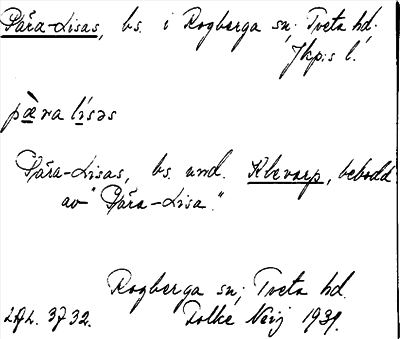 Pära-Lisas, bs. i Rogberga sn; Tveta hd.
Jkps l.
pæ̀ra lísəs
Pära-Lisas, bs. und. Klevarp, bebodd
av "Pära-Lisa."
Rogberga sn; Tveta hd.
3732. Tolke 1931.